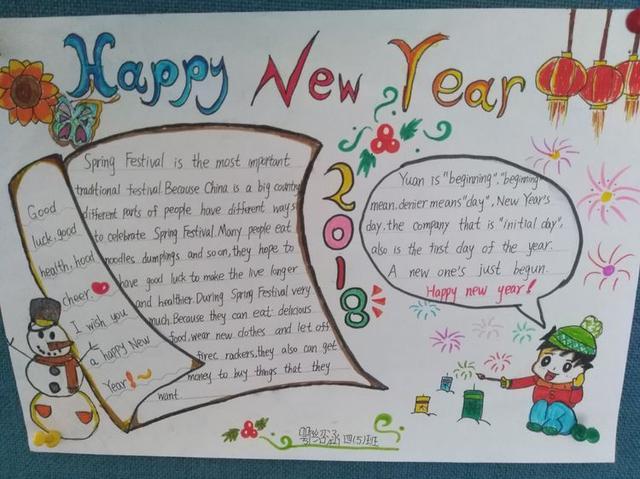 Happy New Year
Good
luck, good
health, hood
cheer.
I wish you
a happy New
Year!
Spring Festival is the most important
traditional festival. Because China is a big country
different parts of people have different ways
to celebrate Spring Festival. Many people eat
noodles. dumplings and so,on, they hope to
have good luck to make the live longer
and healthier. During Spring Festival very
much. Because they can eat delicious
food, wear new clothes and let off
firec rackers, they also can get
money to buy things that they
want
2018
Yuan is "beginning". "beginning"
mean, denier means "day", New Year's
day. the company that is "initial day",
also is the first day of the year.
A new one's just begun.
Happy new year!
四(5)班